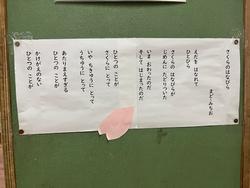 さくらのはなびら
まど・みちお
えだを はなれて
ひとひら
さくらの はなびらが
じめんに たどりついた
いま おわったのだ
そして はじまったのだ
ひとつの ことが
さくらに とって
いや ちきゅうに とって
うちゅうに とって
あたりまえすぎる
ひとつの ことが
かけがえのない
ひとつの ことが